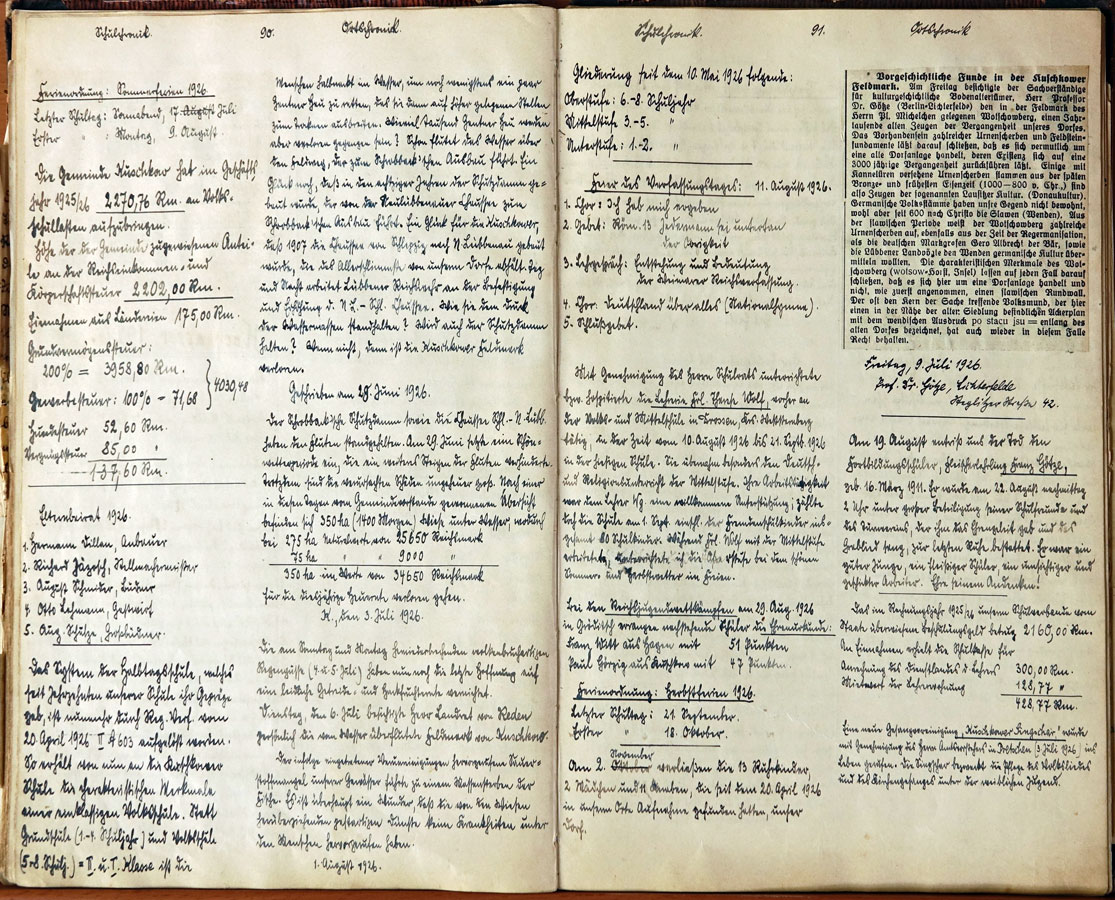 Schulchronik.
90.
Ortschronik.
Ferienordnung: Sommerferien 1926.
Letzter Schultag: Sonnabend, 17. Juli
Erster " : Montag, 9. August
Die Gemeinde Kuschkow hat im Geschäfts
jahr 1925/26 2270,76 Rm. an Volks-
schullasten aufzubringen.
Höhe der der Gemeinde zugewiesenen Antei-
le an der Reichseinkommen- und
Körperschaftssteuer 2202,00 Rm.
Einnahmen aus Ländereien 175,00 Rm.
Grundvermögenssteuer:
200% = 3958,80 Rm.
Gewerbesteuer: 100% = 71,68
4030,48
Hundesteuer 52,60 Rm.
Vergnügungssteuer 85,00 "
137,60 Rm.
Elternbeirat 1926.
1. Hermann Dillan, Anbauer
2. Richard Jäzosch, Stellmachermeister
3. August Schneider, Büdner
4. Otto Lehmann, Gastwirt
5. Aug. Schulze, Großbüdner.
Das System der Halbtagsschule, welches
seit Jahrzehnten unserer Schule ihr Gepräge
gab, ist nunmehr durch Reg. Verf. vom
20. April 1926 II 4603 aufgelöst worden.
So erhält von nun an die Kuschkower
Schule die charakteristischen Merkmale
einer einklassigen Volksschule. Statt
Grundschule (1.-4. Schuljahr) und Volksschule
(5.-8. Schulj.) = II. u. I. Klasse ist die
Menschen halbnackt im Wasser, um noch wenigstens ein paar
Zentner Heu zu retten, das sie dann auf höher gelegenen Stellen
zum Trocknen ausbreiten. Wieviel Tausend Zentner Heu werden
aber verloren gegangen sein? Schon flutet das Wasser über
den Feldweg, der zum Schrobback'schen Ausbau führt. Ein
Glück noch, daß in den achtziger Jahren der Schutzdamm ge-
baut wurde, der von der Neulübbenauer Chaussee zum
Schrobback'schen Ausbau führt. Ein Glück für die Kuschkower,
daß 1907 die Chaussee von Schlepzig nach N. Lübbenau gebaut
wurde, die das Allerschlimmste von unserm Dorfe abhält. Tag
und Nacht arbeitet Lübbener Reichswehr an der Befestigung
und Erhöhung d. N. L. - Schl. Chaussee. Wie sie dem Druck
der Wassermassen standhalten? Wird auch der Schutzdamm
halten? Wenn nicht, dann ist die Kuschkower Feldmark
verloren.
Geschrieben am 29. Juni 1926.
Der Schrobback'sche Schutzdamm sowie die Chaussee Schl. - N. Lübb.
haben den Fluten standgehalten. Am 29. Juni setzte eine Schön-
wetterperiode ein, die ein weiteres Steigen der Fluten verhinderte.
Trotzdem sind die verursachten Schäden ungeheuer groß. Nach einer
in diesen Tagen vom Gemeindevorstande gewonnenen Übersicht
befinden sich 350 ha (1400 Morgen) Wiese unter Wasser, wodurch
bei 275 ha Naturwerte von 25650 Reichsmark
75 ha " " 9000 "
350 ha im Werte von 34650 Reichsmark
für die diesjährige Heuernte verloren gehen.
K., den 3. Juli 1926.
Die am Sonntag und Montag herniederbrechenden wolkenbruchartigen
Regengüsse (4. u. 5. Juli) haben nun noch die letzte Hoffnung auf
eine leidliche Getreide- und Hackfruchternte vernichtet.
Dienstag, den 6. Juli besichtigte Herr Landrat von Reden
persönlich die vom Wasser überflutete Feldmark von Kuschkow.
Der infolge eingetretener Verunreinigungen hervorgerufene Sauer-
stoffmangel unserer Gewässer führte zu einem Massensterben der
Fische. Es ist überhaupt ein Wunder, daß die von den Wiesen
herüberziehenden giftartigen Dünste keine Krankheiten unter
den Menschen hervorgerufen haben.
1. August 1926.
Schulchronik.
91.
Ortschronik
Gliederung seit dem 10. Mai 1926 folgende:
Oberstufe: 6.-8. Schuljahr
Mittelstufe 3.-5. "
Unterstufe: 1.-2. "
Feier des Verfassungstages: 11. August 1926.
1. Chor: Ich hab mich ergeben
2. Gebet: Röm. 13 Jedermann sei untertan
der Obrigkeit
3. Lehrgespräch: Entstehung und Bedeutung
der Weimarer Reichsverfassung.
4. Chor: Deutschland über alles (Nationalhymne).
5. Schlußgebet.
Mit Genehmigung des Herrn Schulrats unterrichtete
bzw. hospitierte die Lehrerin Frl. Wolf, vorher an
der Volks- und Mittelschule in Drossen, Krs. Weststernberg
tätig, in der Zeit vom 10. August 1926 bis 21. Sept. 1926
in der hiesigen Schule. Sie übernahm besonders den Deutsch-
und Religionsunterricht der Mittelstufe. Ihre Arbeitslosigkeit
war dem Lehrer eine willkommene Unterstützung; zählte
doch die Schule am 1. Sept. einschl. der Fremdenschulkinder ins-
gesamt 80 Schulkinder. Während Frl. Wolf mit der Mittelstufe
arbeitete, unterrichtete ich die Oberstufe bei dem schönen
Sommer- und Herbstwetter im Freien.
Bei den Reichsjugendwettkämpfen am 29. Aug. 1926
in Gröditsch errangen nachstehende Schüler die Ehrenurkunde:
Franz Witt aus Hagen mit 51 Punkten
Paul Görzig aus Kuschkow mit 47 Punkten.
Ferienordnung: Herbstferien 1926.
Letzter Schultag: 21. September.
Erster " 18. Oktober.
November
Am 2. Oktober verließen die 13 Ruhrkinder,
2 Mädchen und 11 Knaben, die seit dem 20. April 1926
in unserm Orte Aufnahme gefunden hatten, unser
Dorf.
Vorgeschichtliche Funde in der Kuschkower
Feldmark. Am Freitag besichtigte der Sachverständige
für kulturgeschichtliche Bodenaltertümer, Herr Professor
Dr. Götze (Berlin-Lichterfelde) den in der Feldmark des
Herrn Pl. Michelchen gelegenen Wolschowberg, einen Jahr-
tausende alten Zeugen der Vergangenheit unseres Dorfes.
Das Vorhandensein zahlreicher Urnenscherben und Feldstein-
fundamente läßt darauf schließen, daß es sich vermutlich um
eine alte Dorfanlage handelt, deren Existenz sich auf eine
3000 jährige Vergangenheit zurückführen läßt. Einige mit
Kannelüren versehene Urnenscherben stammen aus der späten
Bronze- und frühesten Eisenzeit (1000—800 v. Chr.,) sind
also Zeugen der sogenannten Lausitzer Kultur. (Donaukultur).
Germanische Volksstämme haben unsre Gegend nicht bewohnt,
wohl aber seit 600 nach Christo die Slawen (Wenden). Aus
der slawischen Periode weist der Wolschowberg zahlreiche
Urnenscherben auf, ebenfalls aus der Zeit der Regermanisation,
als die deutschen Markgrafen Gero Albrecht der Bär, sowie
die Lübbener Landvögte den Wenden germanische Kultur über-
mitteln wollten. Die charakteristischen Merkmale des Wol-
schowberg (wolsow-Horst, Insel) lassen auf jeden Fall darauf
schließen, daß es sich hier um eine Dorfanlage handelt und
nicht, wie zuerst angenommen, einen slawischen Rundwall.
Der oft den Kern der Sache treffende Volksmund, der hier
einen in der Nähe der alten Siedlung befindlichen Ackerplan
mit dem wendischen Ausdruck po stacu jsu = entlang des
alten Dorfes bezeichnet, hat auch wieder in diesem Falle
Recht behalten.
Freitag, 9. Juli 1926.
Prof. Dr. Götze, Lichterfelde
Steglitzer Straße 42.
Am 19. August entriß uns der Tod den
Fortbildungsschüler, Fleischerlehrling Franz Götzl,
geb. 16. März 1911. Er wurde am 22. August nachmittag
2 Uhr unter großer Beteiligung seiner Schulfreunde und
des Turnvereins, der ihm das Ehrengeleit gab und das
Grablied sang, zur letzten Ruhe bestattet. Er war ein
guter Junge, ein fleißiger Schüler, ein umsichtiger und
geschickter Arbeiter. Ehre seinem Andenken!
Das im Rechnungsjahr 1925/26 unserm Schulverbande vom
Staate überwiesene Beschulungsgeld betrug 2160,00 Rm.
An Einnahmen erhielt die Schulkasse für
Anrechnung des Dienstlandes d. Lehrers 300,00 Rm.
Mietwert der Lehrerwohnung 128,77 "
428,77 Rm.
Eine neue Gesangvereinigung „Kuschkower Singschar“ wurde
mit Genehmigung des Herrn Amtsvorstehers in Pretschen (3. Juli 1926) ins
Leben gerufen. Die Singschar bezweckt die Pflege des Volksliedes
und des Kirchengesanges unter der weiblichen Jugend.